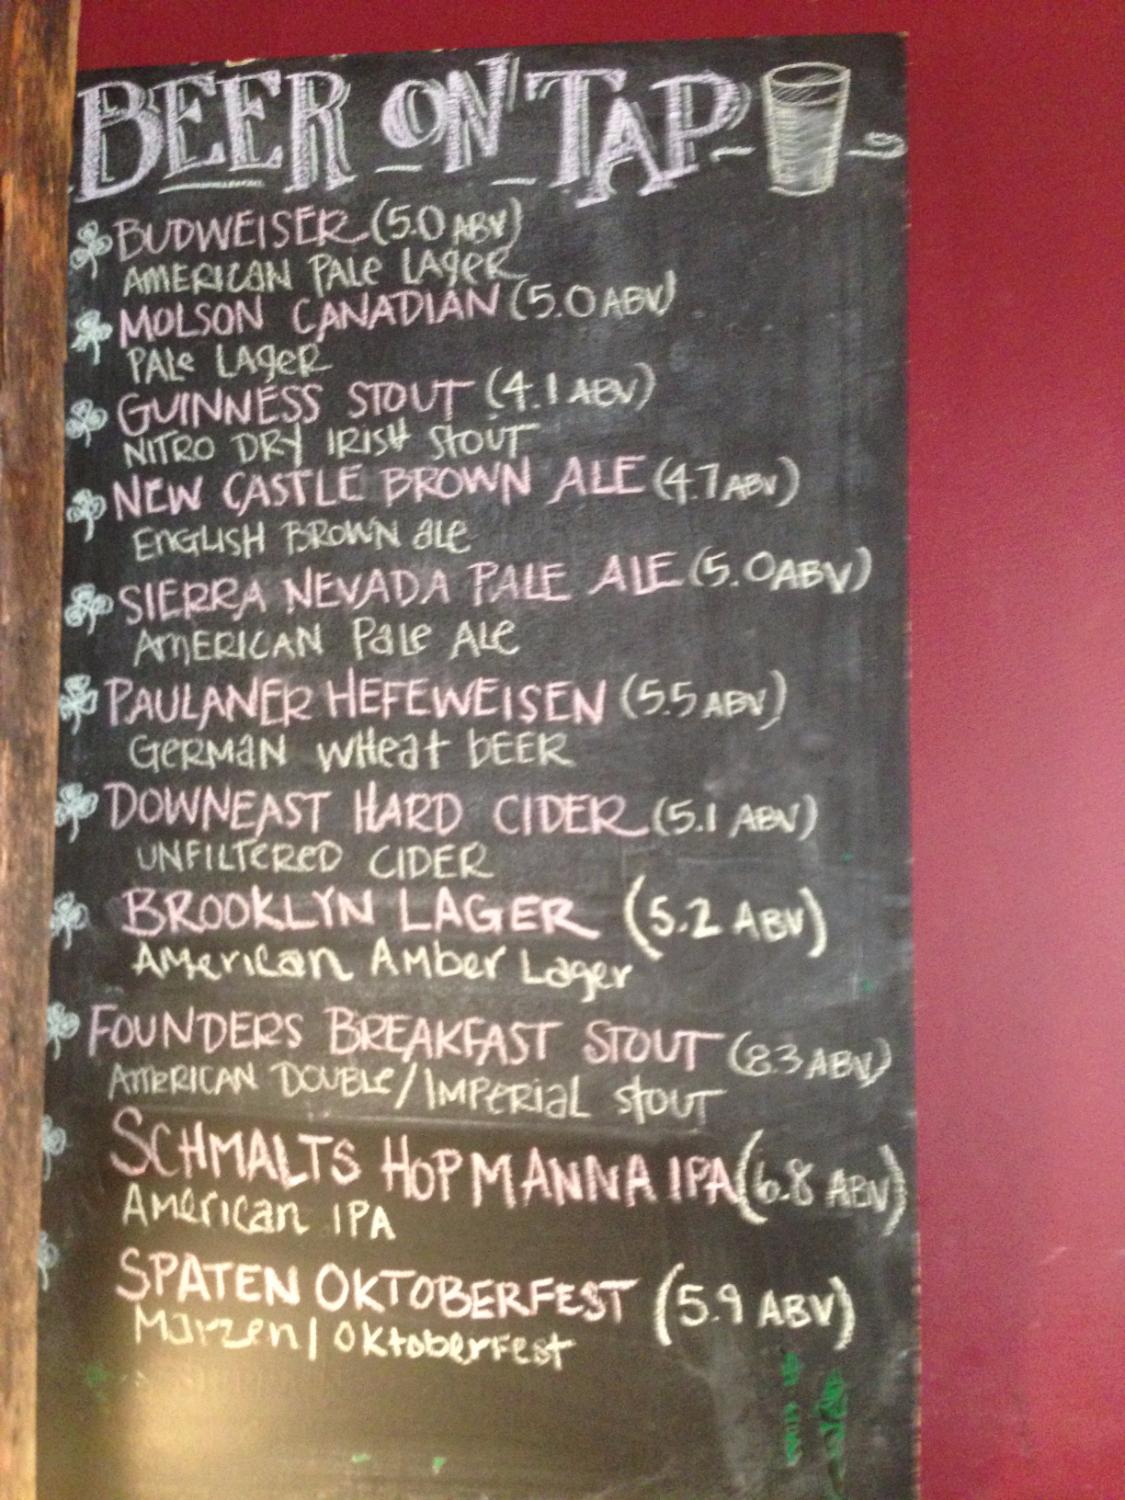 BEER ON TAP
BUDWEISER (5.0 ABV)
AMERICAN PALE LAGER
MOLSON CANADIAN (5.0 ABV)
PALE LAGER
GUINNESS STOUT (4.1 ABV)
NITRO DRY IRISH STOUT
NEW CASTLE BROWN ALE (4.7 ABV)
ENGLISH BROWN ALE
SIERRA NEVADA PALE ALE (5.0 ABV)
AMERICAN PALE ALE
PAULANER HEFEWEISEN (5.5 ABV)
GERMAN WHEAT BEER
DOWNEAST HARD CIDER (5.1 ABV)
UNFILTERED CIDER
BROOKLYN LAGER (5.2 ABV)
American Amber Lager
FOUNDERS BREAKFAST STOUT (8.3 ABV)
AMERICAN DOUBLE/IMPERIAL STOUT
SCHMALTS HOP MANNA IPA (6.8 ABV)
American IPA
SPATEN OKTOBERFEST (5.9 ABV)
Marzen/Oktoberfest